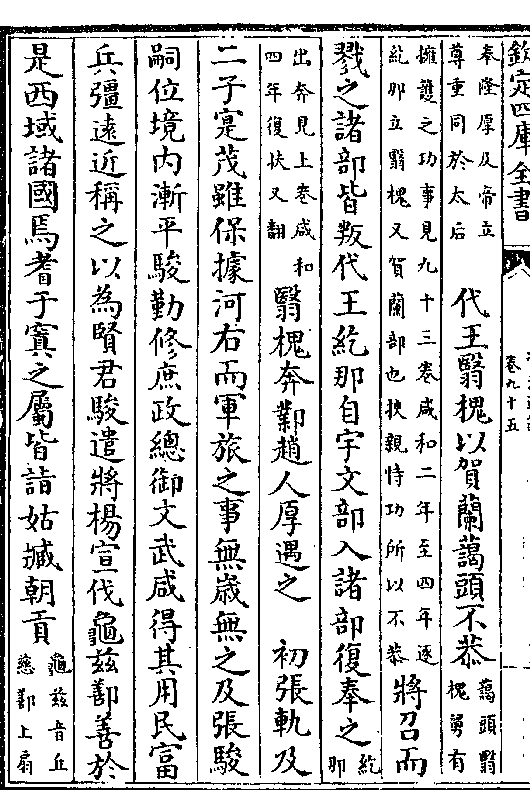 欽定四庫全書
卷九十五
奉隆厚及帝立
尊重同於太后
代王翳槐以賀蘭藹頭不恭
藹頭翳
槐舅有
擁護之功事見九十三卷咸和二年至四年逐
紇那立翳槐又賀蘭部也挾親恃功所以不恭
將召而
戮之諸部皆叛代王紇那自宇文部入諸部復奉之
紇
那
出奔見上卷咸和
四年復扶又翻
翳槐奔鄴趙人厚遇之　初張軌及
二子寔茂雖保據河右而軍旅之事無歲無之及張駿
嗣位境內漸平駿勤修庶政總御文武咸得其用民富
兵彊遠近稱之以為賢君駿遣將楊宣伐龜兹鄯善於
是西域諸國焉耆于寘之屬皆詣姑臧朝貢
龜兹音丘
慈鄯上扇